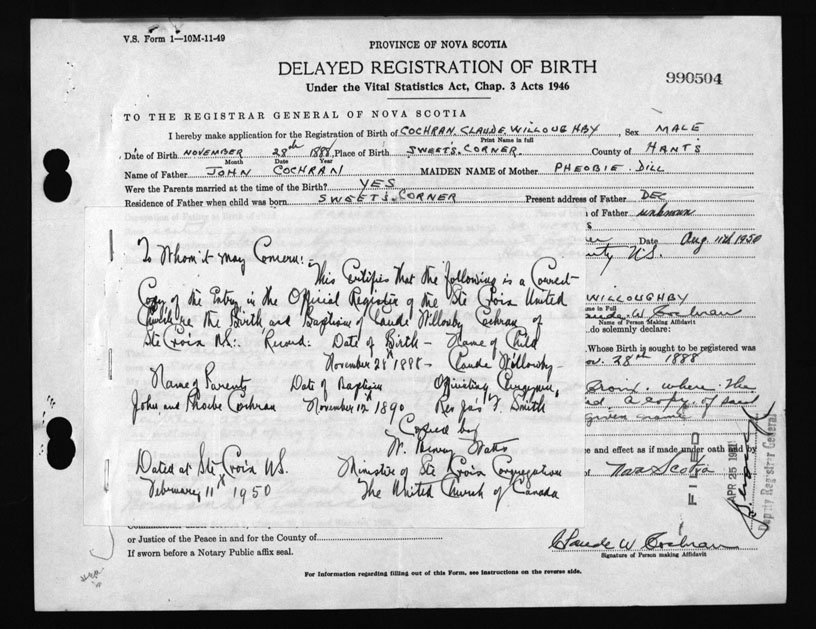 V.S. Form 1—10M-11-49
PROVINCE OF NOVA SCOTIA
DELAYED REGISTRATION OF BIRTH
990504
Under the Vital Statistics Act, Chap. 3 Acts 1946
TO THE REGISTRAR GENERAL OF NOVA SCOTIA
I hereby make application for the Registration of Birth of COCHRAN CLAUDE WILLOUGHBY, Sex MALE
Print Name in full
Date of Birth NOVEMBER 28th 1888, Place of Birth SWEET'S CORNER. County of HANTS
Month Date Year
Name of Father JOHN COCHRAN MAIDEN NAME of Mother PHEOBIE DILL
Were the Parents married at the time of the Birth? YES
Residence of Father when child was born SWEETS. CORNER Present address of Father DEC
of Father unknown
Date Aug. 11th 1950
To Whom it may Concern:-
This Certifies that the following is a Correct
Copy of the Entry in the Official Register of the Ste Croix United
Church re the Birth and Baptism of Claude Willowby Cochran of
Ste Croix N.S.: Record: Date of Birth — Name of Child
November 28th 1888 — Claude Willowby —
Name of Parents Date of Baptism Officiating Clergyman,
John and Phoebe Cochran November 12th 1890 Rev Jas T. Smith
Copied by
W. Henry Watts
Dated at Ste Croix N.S. Minister of Ste Croix Congregation
February 11th 1950 The United Church of Canada
WILLOUGHBY
me in Full
Claude W Cochran
Name of Person Making Affidavit
do solemnly declare:
Whose Birth is sought to be registered was
Nov. 28th 1888
Croix. where the
a copy of said
given name
e and effect as if made under oath and by
of Nova Scotia
FILED
APR 25 1951
Deputy Registrar General
or Justice of the Peace in and for the County of
If sworn before a Notary Public affix seal.
Claude W Cochran
Signature of Person making Affidavit
For information regarding filling out of this Form, see instructions on the reverse side.